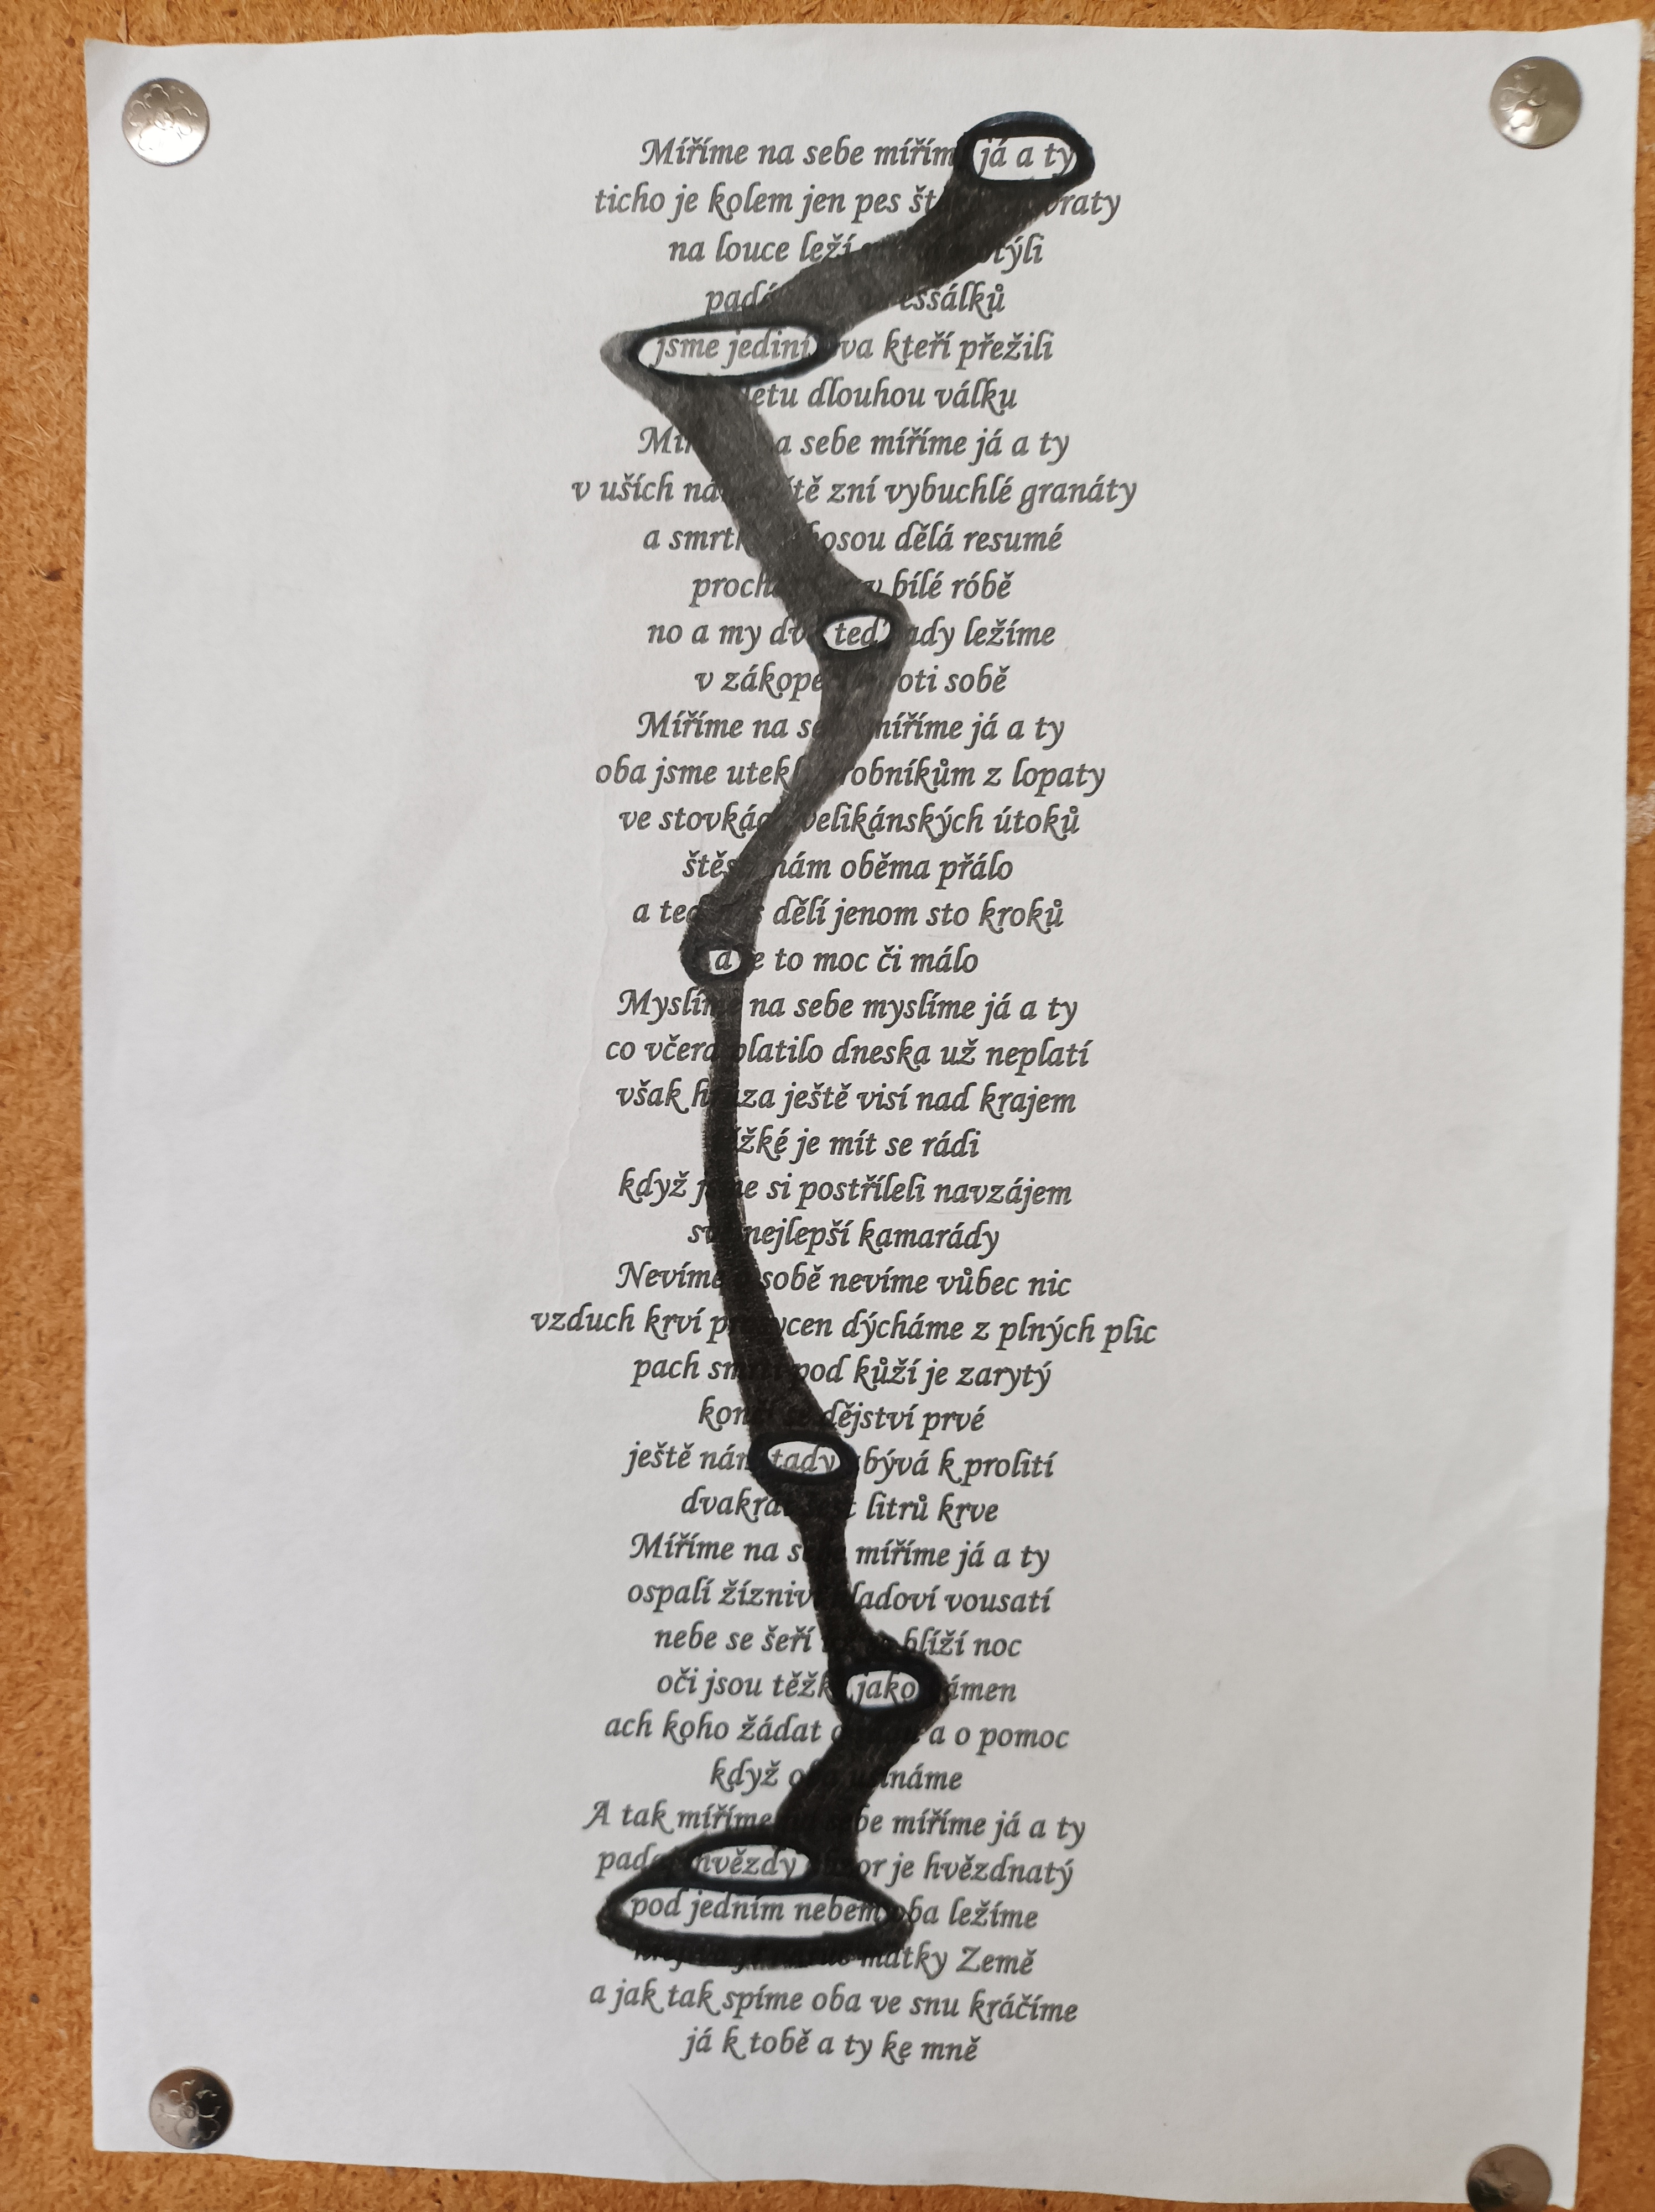 Míříme na sebe míříme já a ty
ticho je kolem jen pes vraty
na louce leží
padá
jsme jediní dva kteří přežili
letu dlouhou válku
Míříme na sebe míříme já a ty
v uších nám zní vybuchlé granáty
a smrtka kosou dělá resumé
prochází v bílé róbě
no a my dva teď tady ležíme
v zákopech proti sobě
Míříme na sebe míříme já a ty
oba jsme utekli hrobníkům z lopaty
ve stovkách velikánských útoků
štěstí nám oběma přálo
a teď nás dělí jenom sto kroků
a je to moc či málo
Myslíme na sebe myslíme já a ty
co včera platilo dneska už neplatí
však hrůza ještě visí nad krajem
těžké je mít se rádi
když jsme si postříleli navzájem
své nejlepší kamarády
Nevíme o sobě nevíme vůbec nic
vzduch krví prosycen dýcháme z plných plic
pach smrti pod kůží je zarytý
končí se dějství prvé
ještě nám tady zbývá k prolití
dvakrát šest litrů krve
Míříme na sebe míříme já a ty
ospalí žízniví hladoví vousatí
nebe se šeří blíží noc
oči jsou těžké jako kámen
ach koho žádat o radu a o pomoc
když oba usínáme
A tak míříme na sebe míříme já a ty
padají hvězdy obzor je hvězdnatý
pod jedním nebem oba ležíme
matky Země
a jak tak spíme oba ve snu kráčíme
já k tobě a ty ke mně